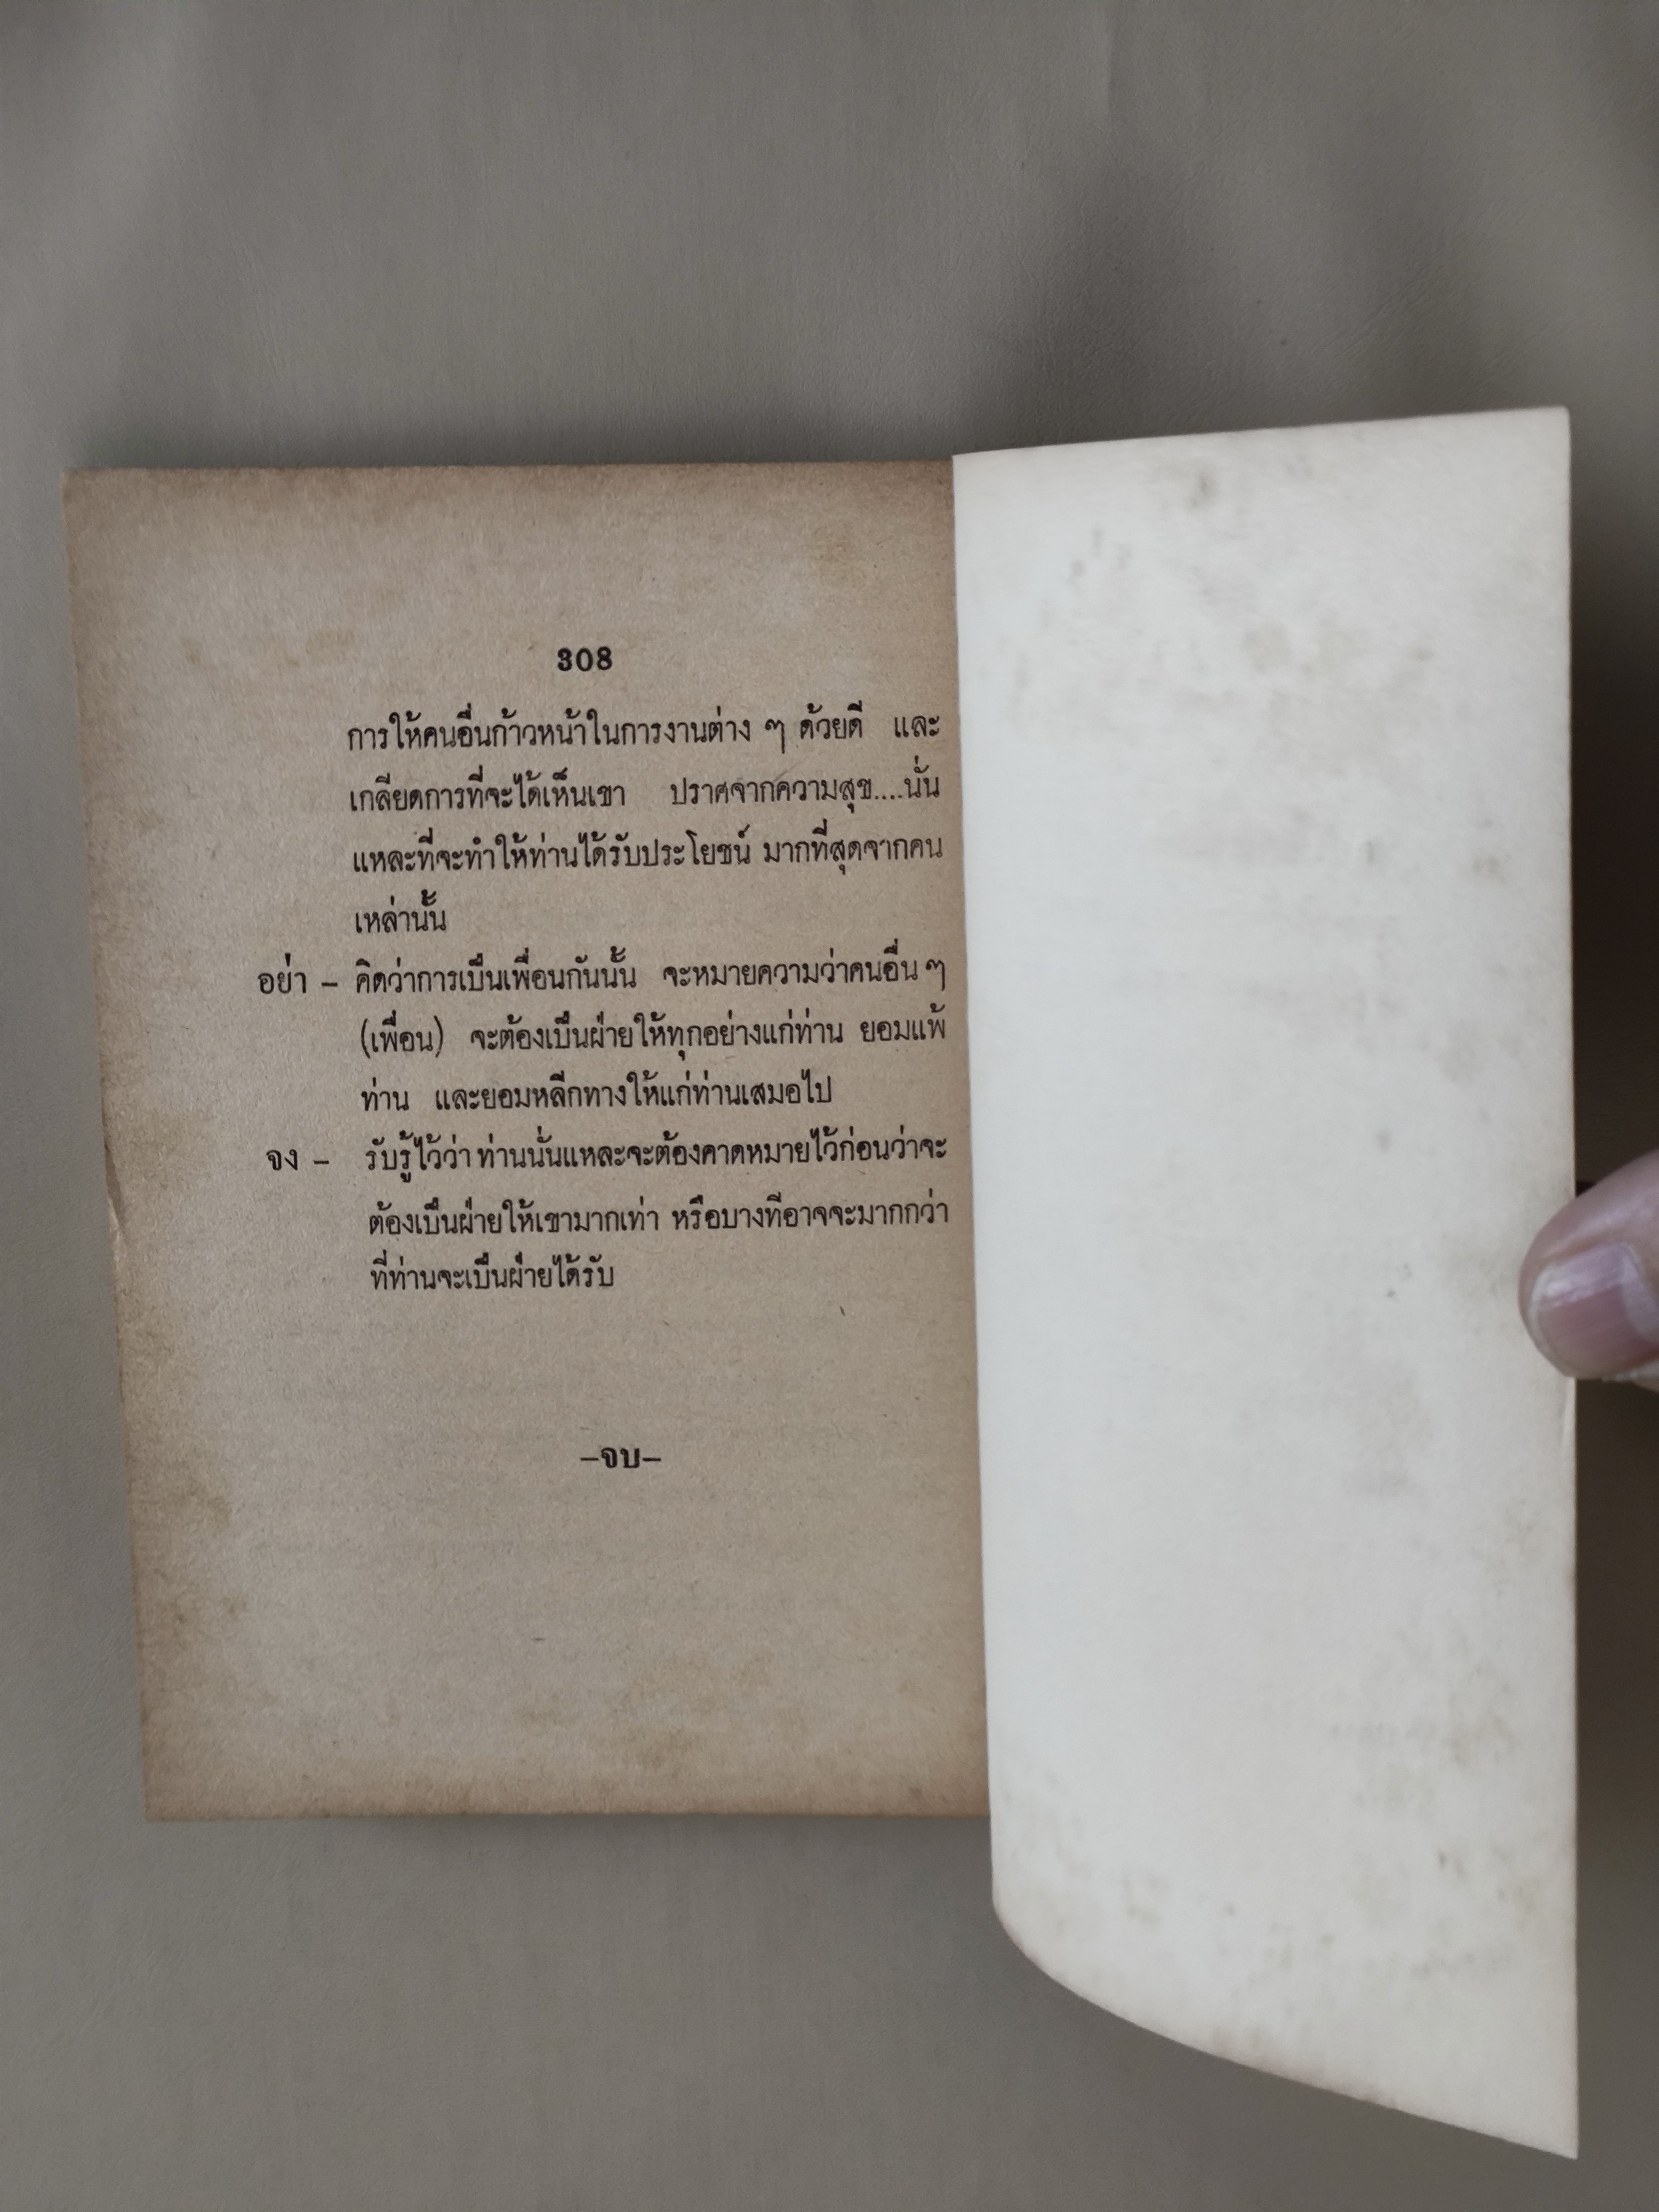 308
การให้คนอื่นก้าวหน้าในการงานต่าง ๆ ด้วยดี และ
เกลียดการที่จะได้เห็นเขา ปราศจากความสุข....นั่น
แหละที่จะทำให้ท่านได้รับประโยชน์ มากที่สุดจากคน
เหล่านั้น
อย่า – คิดว่าการเป็นเพื่อนกันนั้น จะหมายความว่าคนอื่น ๆ
(เพื่อน) จะต้องเป็นฝ่ายให้ทุกอย่างแก่ท่าน ยอมแพ้
ท่าน และยอมหลีกทางให้แก่ท่านเสมอไป
จง – รับรู้ไว้ว่า ท่านนั่นแหละจะต้องคาดหมายไว้ก่อนว่าจะ
ต้องเป็นฝ่ายให้เขามากเท่า หรือบางทีอาจจะมากกว่า
ที่ท่านจะเป็นฝ่ายได้รับ
–จบ–